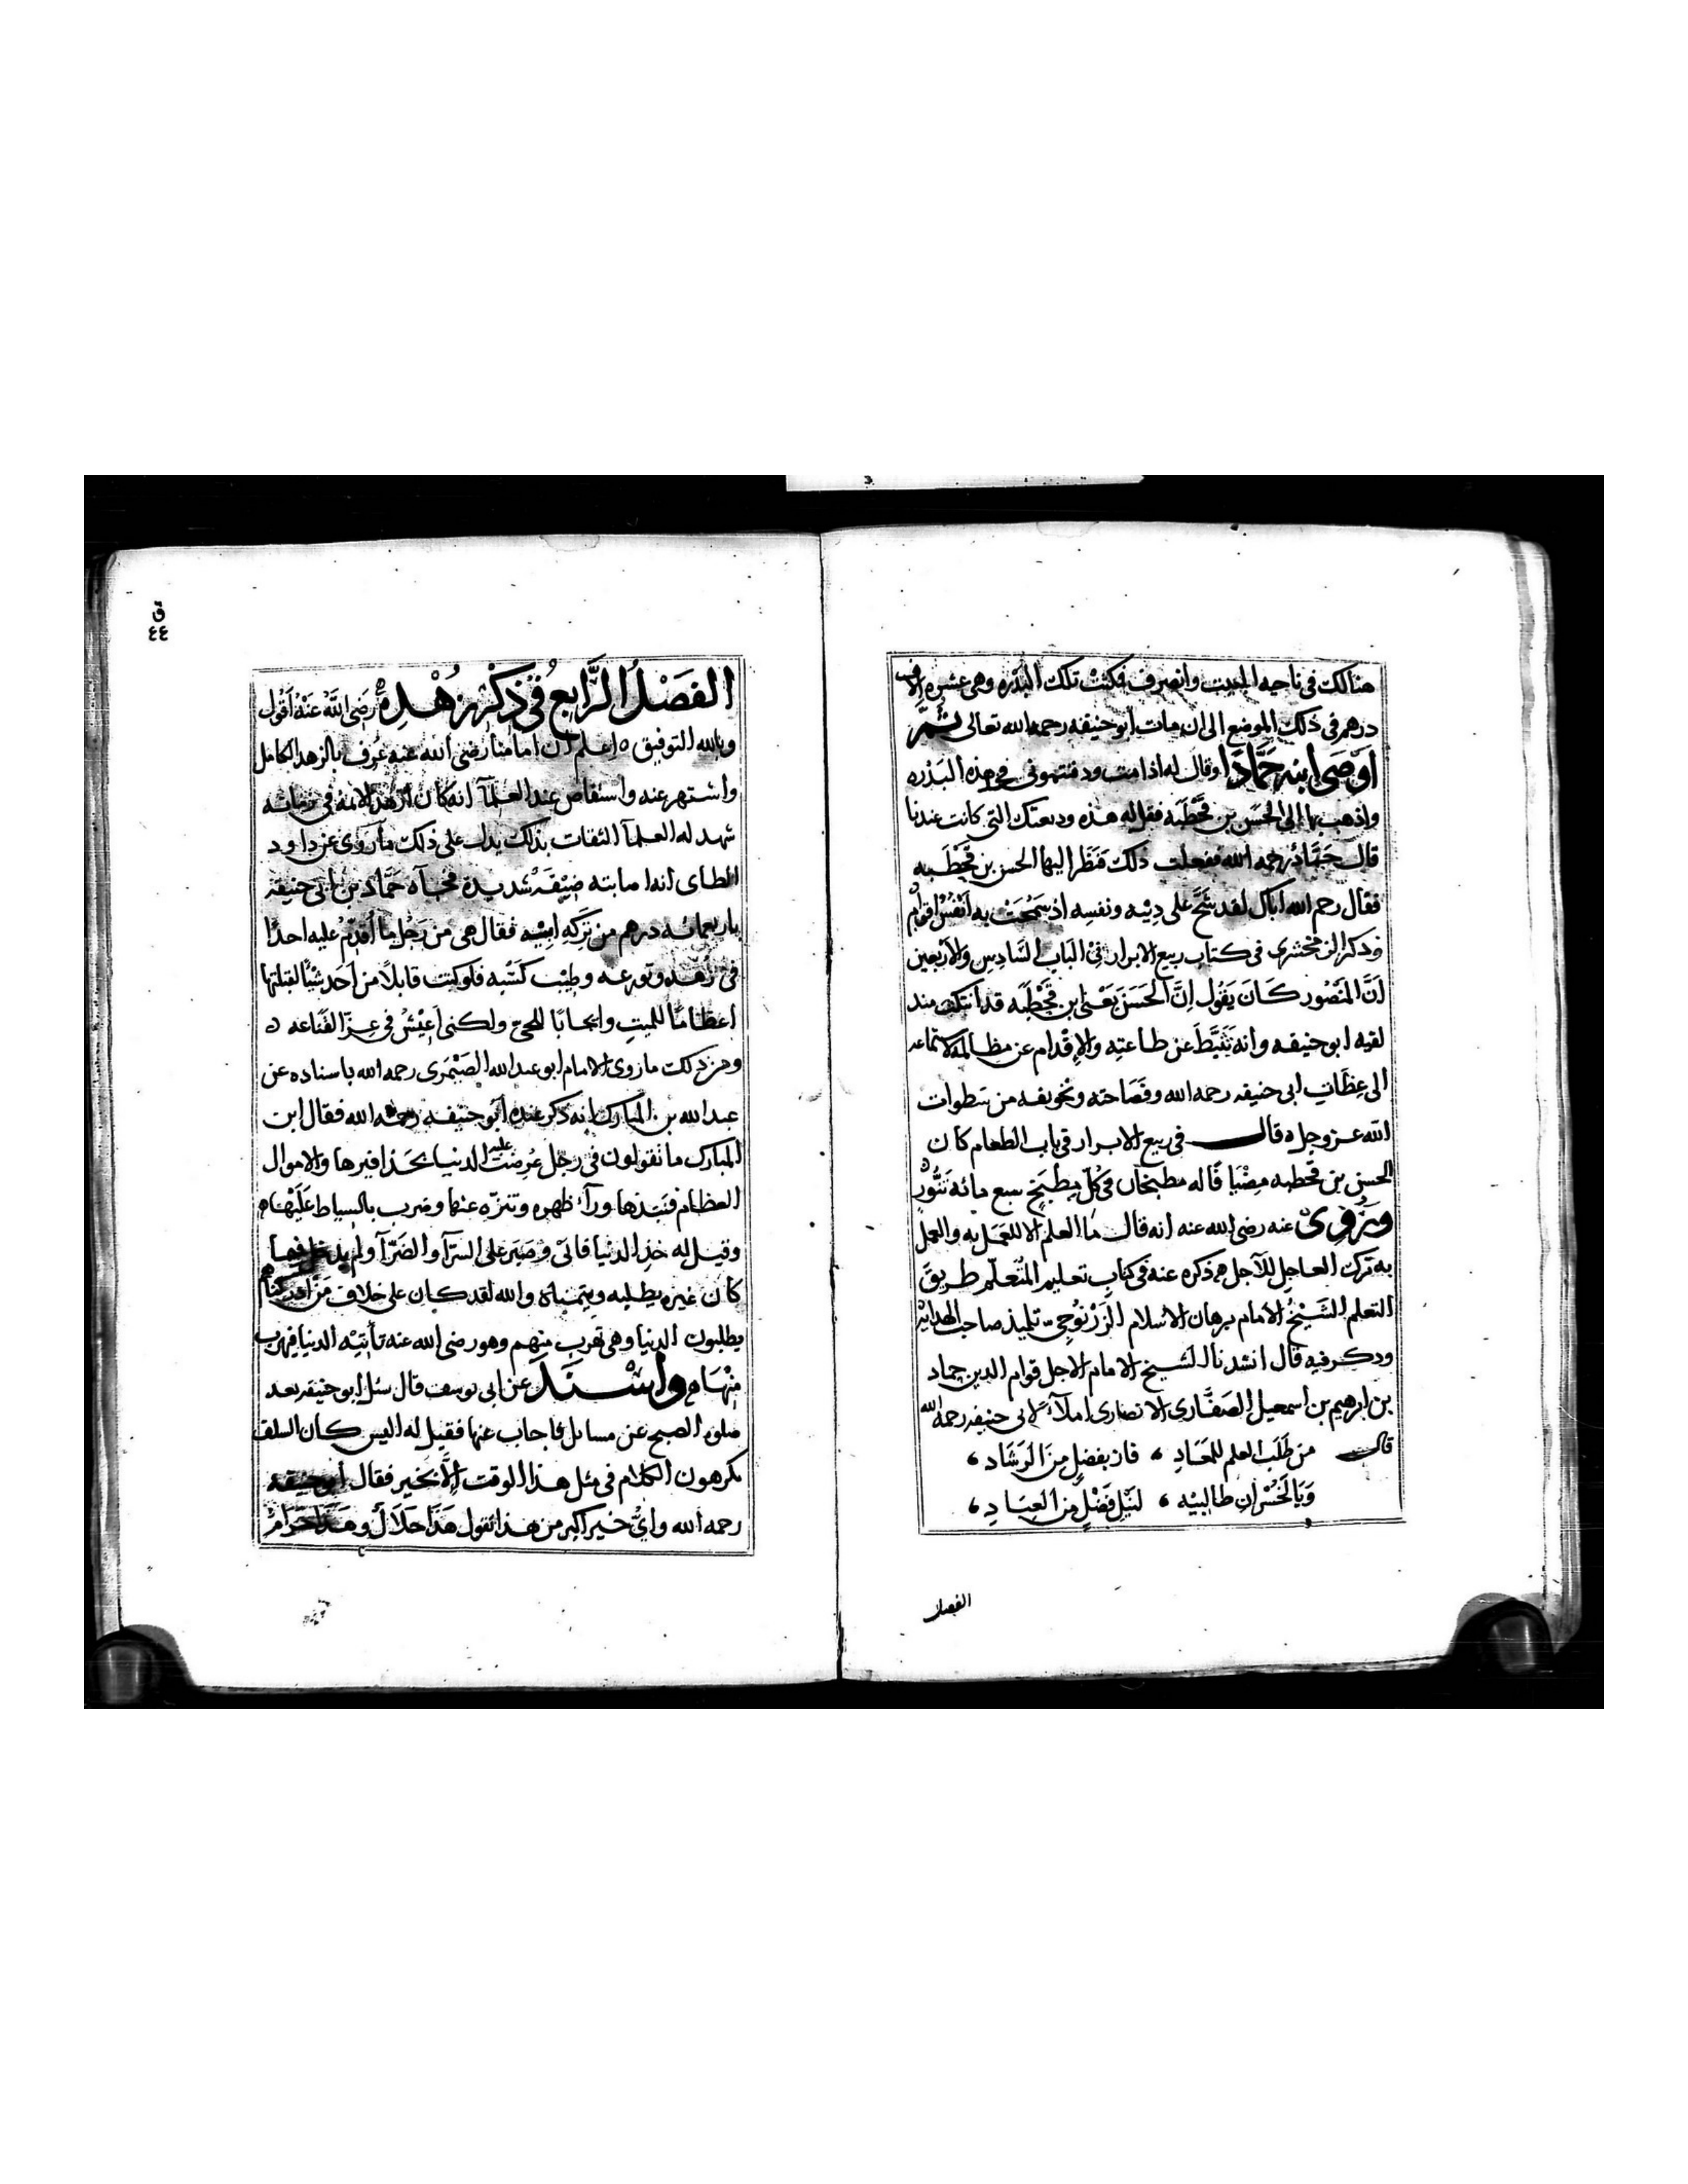 هنالك فى ناحيه البيت وانصرف فمكثت تلك البدره وهى عشره الاف
درهم فى ذلك الموضع الى ان مات ابو حنيفه رحمه الله تعالى ثمَّ
اوصى ابنه حَمَّادًا وقال له اذا مت ودفنتمونى فخذ هذه البَدْره
واذهب بها الى الحَسَن بن قَحْطَبَه فقل له هذه وديعتك التى كانت عندنا
قال حَمَّادٌ رحمه الله ففعلت ذلك فَنَظَر اليها الحسن بن قَحْطَبه
فقال رحم الله اباك لقد شحَّ على دِيْنِه ونفسِه اذ سَمُحَتْ به اَنْفُسُ اقوام
وذكر الزمخشرى فى كتاب ربيع الابرار فى الباب السَّادِس والاَربعين
اَنَّ المنْصُور كَانَ يَقُول اِنَّ الحَسَنَ يَعْنى ابن قَحْطَبَه قد انتكث منذ
لقيه ابو حنيفه وانه تَثَبَّطَ عن طاعتِه والاِقْدام عن مظالمه لاستماعه
الى عِظَاتِ ابى حنيفه رحمه الله وفَصَاحته وتخويفه من سَطوات
الله عز وجل ه قال فى ربيع الابرار فى باب الطعام كان
الحسن بن قحطبه مِضْيَافًا له مطبخان فى كُلّ مِطْبَخٍ سبع مائه تَنُّوْر
ورُوِىَ عنه رضى الله عنه انه قال مَا العلم الا للعَمل به والعمل
به تَرك العاجِل للآجل ذكره عنه فى كتابِ تعليم المُتَعلّم طريقَ
التعلم الشَيْخُ الامام برهان الاسلام الزَرْنُوجى تلميذ صاحب الهدايه
وذكر فيه قال انشدنا الشيخ الامام الاجل قوام الدين حماد
بن ابرهيم بن اسمعيل الصَفَّارى الانصارى املآءً لابى حنيفه رحمه الله
قال من طَلَبَ العلم للمَعَادِ ، فاز بفضلٍ مِنَ الرَشَاد ،
وَيَا لَخُسْرانِ طالبيْه ، لنَيْل فَضْلٍ من العِبَادِ ،
الفصل
ق
٤٤
الفَصْلُ الرَّابِعُ فى ذِكْر زُهْدِهِ رَضِىَ اللَّهُ عَنْهُ اَقُول
وبالله التوفيق ه اِعلم اَن امامنا رضى الله عنه عُرِف بالزهد الكامل
واشتهر عنه واستفاض عند العلمآ انه كان ازهد الائمه فى زمانه
شهد له العلمآ الثقات بذلك يدل على ذلك ما رَوى عن داود
الطاى انه اصابته ضِيْقَةٌ شديدة فجاه حَمَّاد بن ابى حنيفه
باربعمائه درهم من تركه ابيْه فقال هى من رَجُل ما أُقدِّم عليه احدًا
فى زهده وتورعه وطِيْب كَسْبه فلو كنت قابلاً من اَحَد شيئًا لقبلتها
اعظامًا للميتِ وايجابًا للحى ولكنى اَعِيْشُ فى عِزّ القَناعه ه
ومن ذلك ما روى الامام ابو عبد الله الصَيْمَرى رحمه الله باسناده عن
عبد الله بن المبارك انه ذكر عنده ابو حنيفه رحمه الله فقال ابن
المبارك ما تقولون فى رجل عُرِضت عليه الدنيا بحَذافيرها والاموال
العظام فنبذها ورآء ظهره وتنزّه عنها وضرب بالسياط عَلَيْهَا
وقيل له خذ الدنيا فابىْ وصَبَر على السَرَّآ والضَرّآ ولم يدخل فيما
كان غيره يطلبه ويتمناه والله لقد كان على خلاف مَن ادركنا
يطلبون الدنيا وهى تهرب منهم وهو رضى الله عنه تأتيْه الدنيا فيهرب
مِنْهَا واَسْنَدَ عن ابى يوسف قال سئل ابو حنيفه بعد
صلوه الصبح عن مسائل فاجاب عنها فقيل له اليس كان السلف
يكرهون الكلام فى مثل هذا الوقت اِلَّا بخير فقال ابو حنيفه
رحمه الله واىُّ خير اكبر من هذا تقول هَذَا حَلَالٌ وهَذَا حَرَامٌ